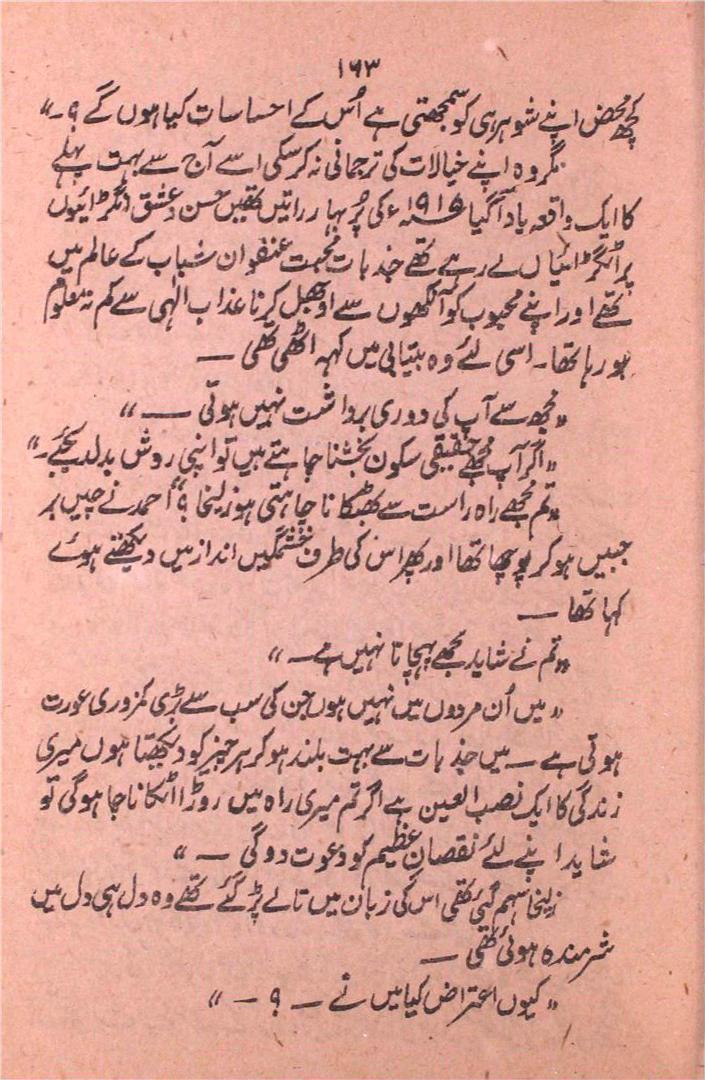 ۱۶۳
کچھ محض اپنے شوہر ہی کو سمجھتی ہے اُس کے احساسات کیا ہوں گے ؟ـ"
مگر وہ اپنے خیالات کی ترجمانی نہ کر سکی اسے آج سے بہت پہلے
کا ایک واقعہ یاد آگیا ۱۹۱۵ء کی پُر بہار راتیں تھیں حسن و عشق انگڑائیوں
پر انگڑائیاں لے رہے تھے جذبات محبت عنفوان شباب کے عالم میں
تھے اور اپنے محبوب کو آنکھوں سے اوجھل کرنا عذاب الٰہی سے کم نہ معلوم
ہو رہا تھا۔ اسی لئے وہ بیتابی میں کہہ اٹھی تھی —
"مجھ سے آپ کی دوری برداشت نہیں ہوتی —"
"اگر آپ مجھے حقیقی سکون بخشنا چاہتے ہیں تو اپنی روش بدلدیجئے۔"
"تم مجھے راہ راست سے بھٹکانا چاہتی ہو زلیخا ؟" احمد نے چیں بر
جبیں ہو کر پوچھا تھا اور پھر اس کی طرف خشمگیں انداز میں دیکھتے ہوئے
کہا تھا —
"تم نے شاید مجھے پہچانا نہیں ہے۔"
"میں اُن مردوں میں نہیں ہوں جن کی سب سے بڑی کمزوری عورت
ہوتی ہے — میں جذبات سے بہت بلند ہو کر ہر چیز کو دیکھتا ہوں میری
زندگی کا ایک نصب العین ہے اگر تم میری راہ میں روڑا اٹکانا چاہو گی تو
شاید اپنے لئے نقصانِ عظیم کو دعوت دو گی —"
زلیخا سہم گئی تھی اس کی زبان میں تالے پڑ گئے تھے وہ دل ہی دل میں
شرمندہ ہوئی تھی —
"کیوں اعتراض کیا میں نے — ؟ —"